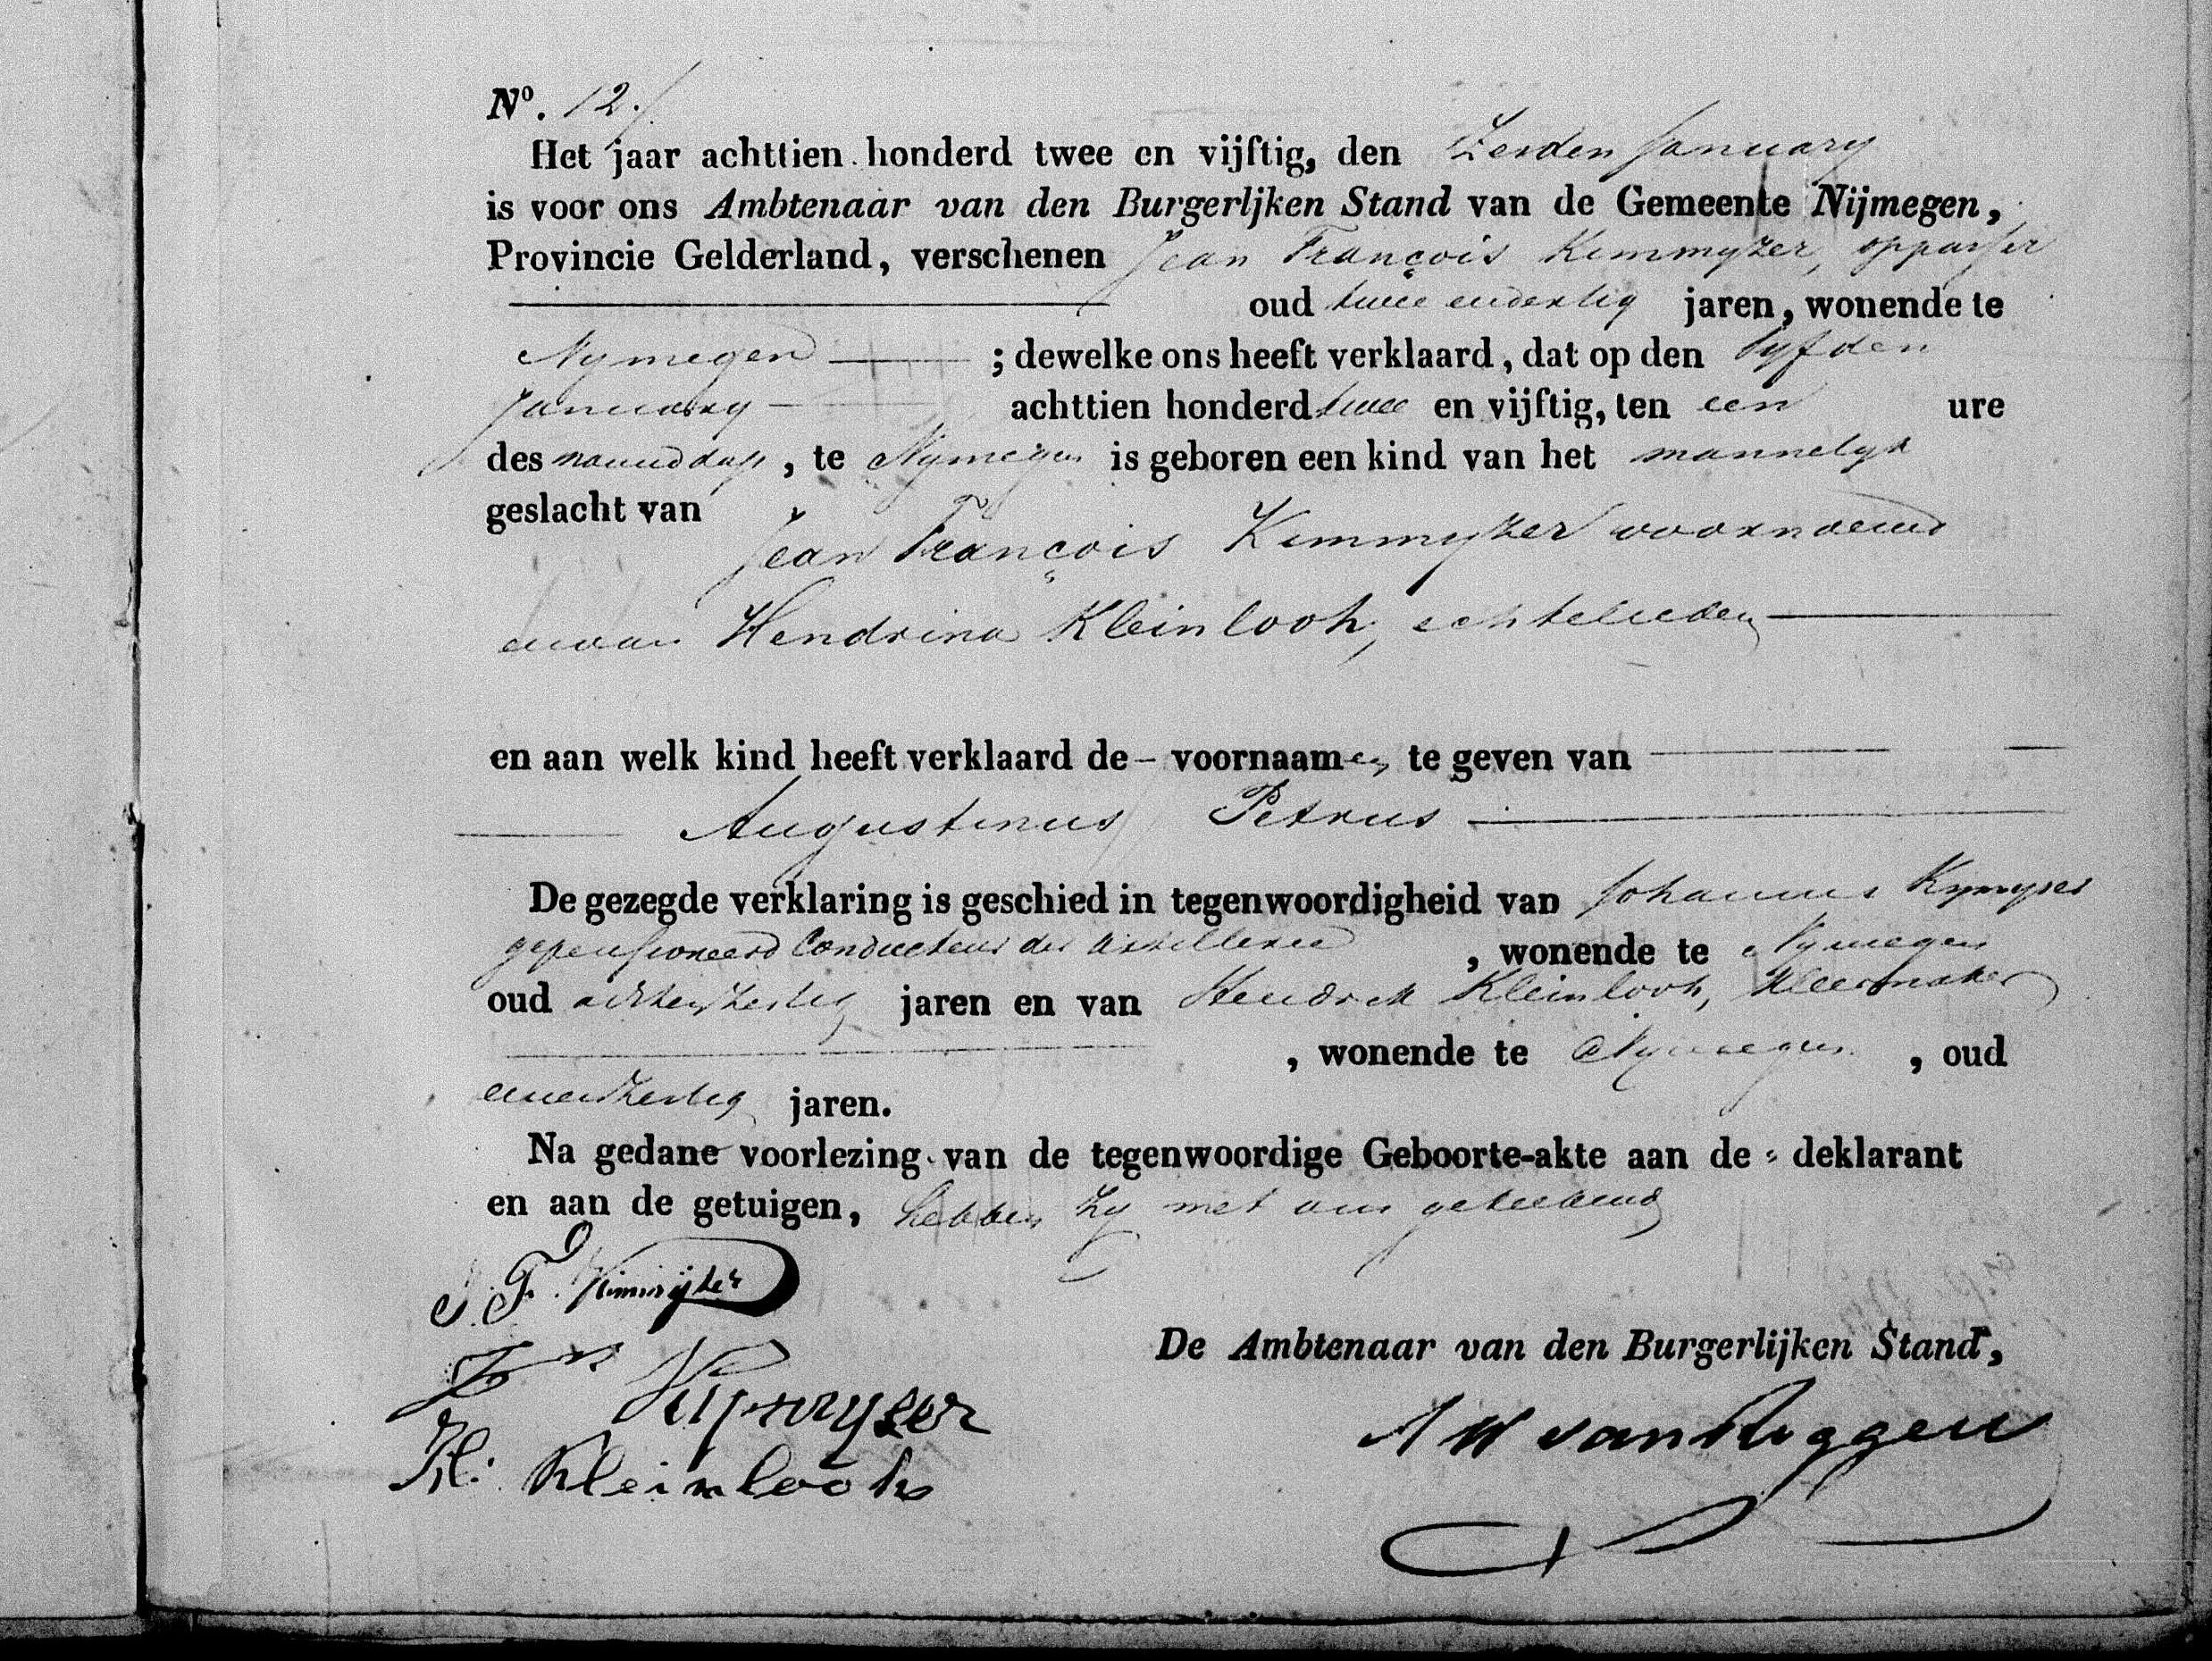 Nº. 12.
Het jaar achttien honderd twee en vijftig, den Zesden January
is voor ons Ambtenaar van den Burgerljken Stand van de Gemeente Nijmegen,
Provincie Gelderland, verschenen Jean François Kemmyzer, oppasser
oud twee endertig jaren, wonende te
Nymegen ; dewelke ons heeft verklaard, dat op den Vyfden
January achttien honderd twee en vijftig, ten een ure
des namiddags, te Nymegen is geboren een kind van het mannelyk
geslacht van
Jean François Kemmyzer voornoemd
en van Hendrina Kleinlooh, echtelieden
en aan welk kind heeft verklaard de voornaamen te geven van
Augustinus Petrus
De gezegde verklaring is geschied in tegenwoordigheid van Johannes Kymyser
gepensioneerd Conducteur der Artillerie, wonende te Nymegen
oud achtenzestig jaren en van Hendrik Kleinlooh, Kleermaker
, wonende te Nymegen, oud
eenenzestig jaren.
Na gedane voorlezing van de tegenwoordige Geboorte-akte aan de deklarant
en aan de getuigen, hebben zy met ons geteekend
J. F. Kimmijzer
Kijmyser
H: Kleinlooh
De Ambtenaar van den Burgerlijken Stand,
van Roggen